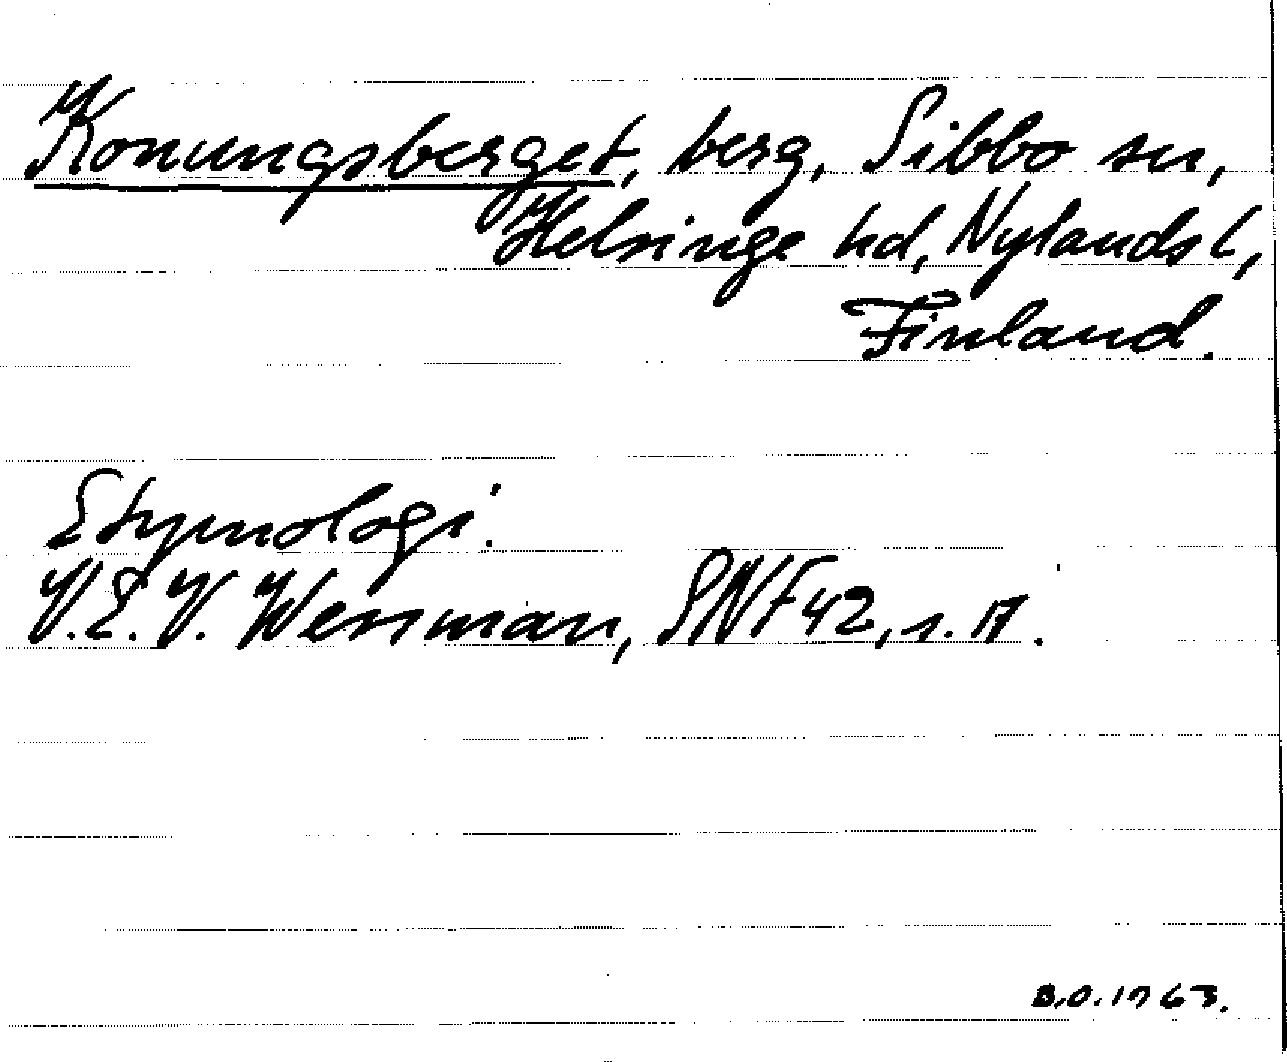 Konungsberget, berg, Sibbo sn,
Helsinge hd, Nylands l,
Finland.
Etymologi.
V.E.V. Wessman, SNF 42, s. 17.
B.O. 1963.